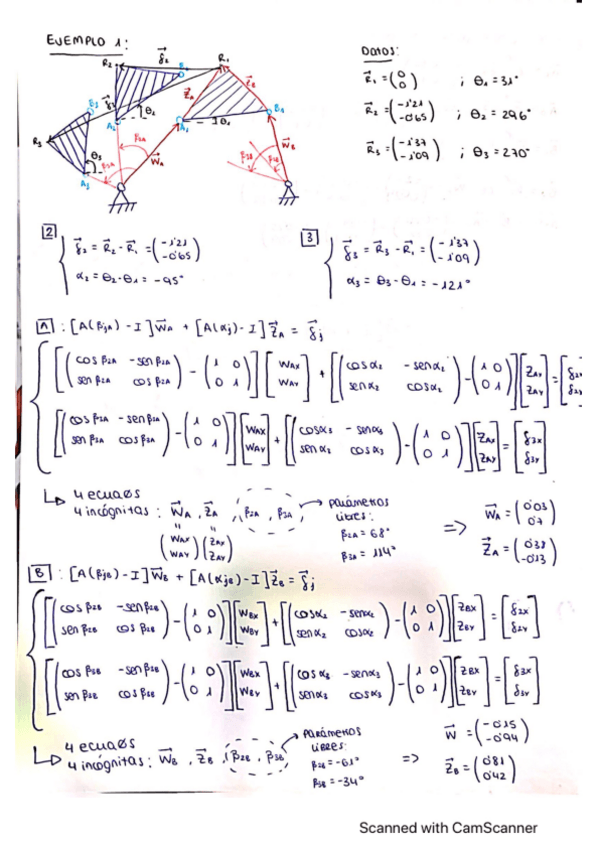 EJEMPLO 1:
R₂ δ⃗₂ R₁
B₂
δ⃗₃ Z⃗A Z⃗B
B₃ A₂ θ₂ A₁ θ₁ B₁
R₃ β₂A W⃗A W⃗B
θ₃ β₃A
A₃
DATOS:
R⃗₁ = (0 0) ; θ₁ = 31°
R⃗₂ = (-1'21 -0'65) ; θ₂ = 296°
R⃗₃ = (-1'37 -1'09) ; θ₃ = 270°
2 { δ⃗₂ = R⃗₂ - R⃗₁ = (-1'21 -0'65)
α₂ = θ₂ - θ₁ = -95°
3 { δ⃗₃ = R⃗₃ - R⃗₁ = (-1'37 -1'09)
α₃ = θ₃ - θ₁ = -121°
A : [A(βjA) - I] W⃗A + [A(αj) - I] Z⃗A = δ⃗j
[(cos β2A -sen β2A sen β2A cos β2A) - (1 0 0 1)] [WAX WAY] + [(cos α₂ -sen α₂ sen α₂ cos α₂) - (1 0 0 1)] [ZAX ZAY] = [δ2X δ2Y]
[(cos β3A -sen β3A sen β3A cos β3A) - (1 0 0 1)] [WAX WAY] + [(cos α₃ -sen α₃ sen α₃ cos α₃) - (1 0 0 1)] [ZAX ZAY] = [δ3X δ3Y]
4 ecuaøs
4 incógnitas : W⃗A , Z⃗A , β2A , β3A
(WAX WAY) (ZAX ZAY)
parámetros
libres:
β2A = 68°
β3A = 114°
=> W⃗A = (0'03 0'7)
Z⃗A = (0'38 -0'13)
B : [A(βjB) - I] W⃗B + [A(αjB) - I] Z⃗B = δ⃗j
[(cos β2B -sen β2B sen β2B cos β2B) - (1 0 0 1)] [WBX WBY] + [(cos α₂ -sen α₂ sen α₂ cos α₂) - (1 0 0 1)] [ZBX ZBY] = [δ2X δ2Y]
[(cos β3B -sen β3B sen β3B cos β3B) - (1 0 0 1)] [WBX WBY] + [(cos α₃ -sen α₃ sen α₃ cos α₃) - (1 0 0 1)] [ZBX ZBY] = [δ3X δ3Y]
4 ecuaøs
4 incógnitas : W⃗B , Z⃗B , β2B , β3B
parámetros
libres:
β2B = -61°
β3B = -34°
=> W⃗ = (-0'15 -0'94)
Z⃗B = (0'81 0'42)
Scanned with CamScanner